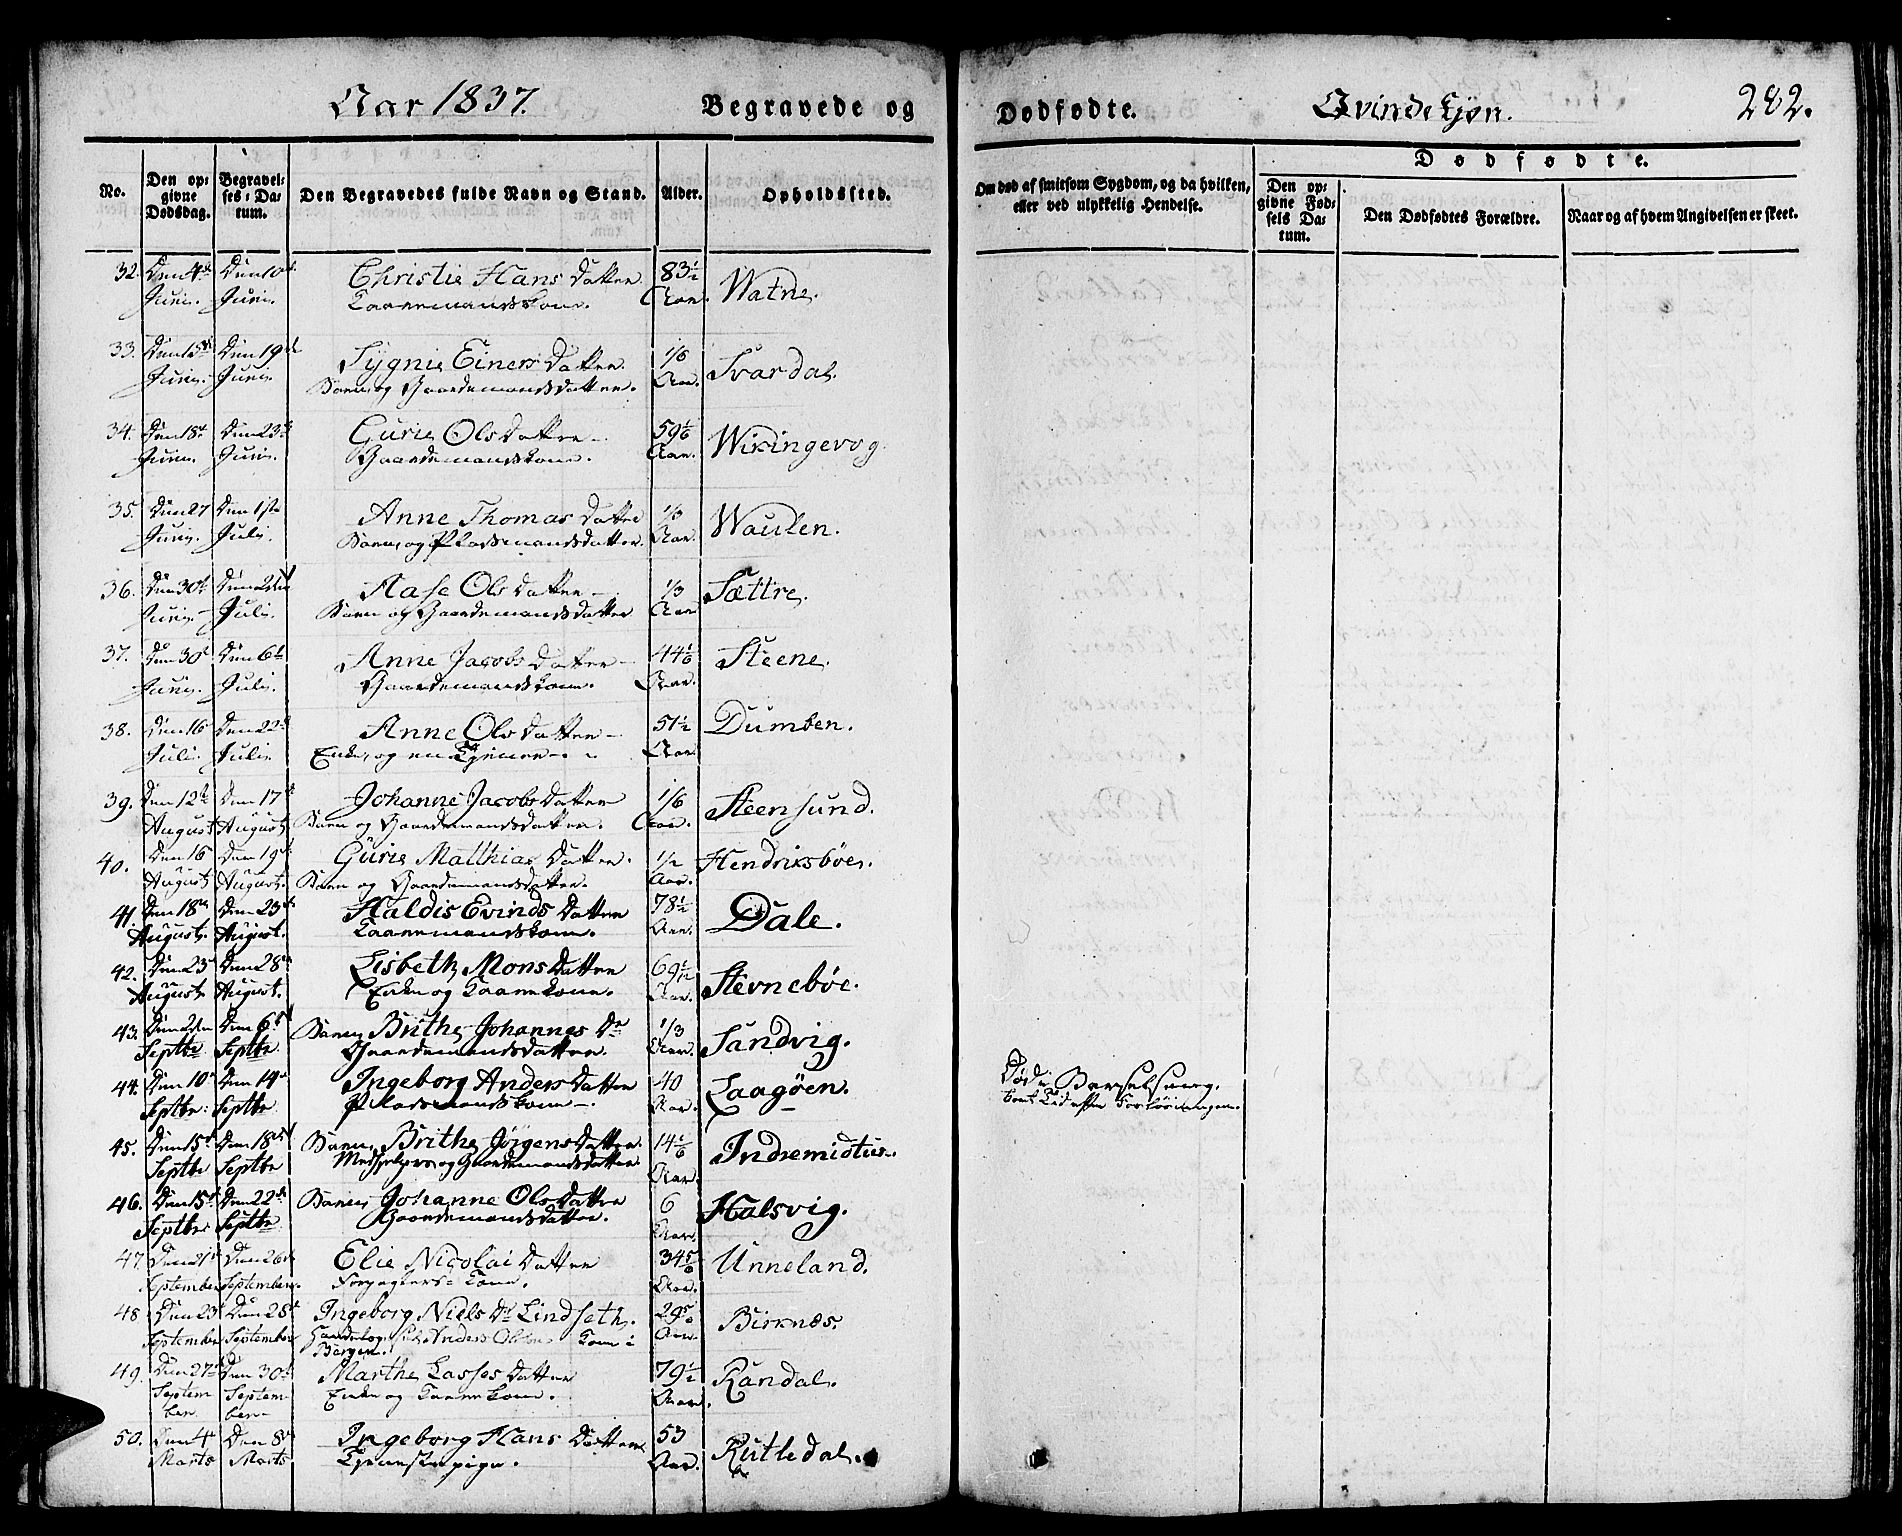 Aar 1837. Begravede og Dødfødte. Qvindekjøn. 282.
No. Den opgivne Dødsdag. Begravelses-Datum. Den Begravedes fulde Navn og Stand. Alder. Opholdssted. Om død af smitsom Sygdom, og da hvilken, eller ved ulykkelig Hendelse. Dødfødte. Den opgivne Fødsels Datum. Den Dødfødtes Forældre. Naar og af hvem Angivelsen er skeet.
32. Den 4de Den 10de Christie Hans Datter 83 1/2 Watne.
Juni. Juni. Kaaremandskone. Aar.
33. Den 15de Den 19de Sygnie Einers Datter 1/6 Svardal.
Juni. Juni. Barn og Gaardemandsdatter. Aar.
34. Den 18de Den 23de Gurie Ols Datter 59 1/6 Wikingevog
Juni. Juni. Gaardemandskone. Aar.
35. Den 27 Den 1ste Anne Thomas Datter 1/3 Waulen.
Juni. Juli. Barn og Pladsmandsdatter. Aar.
36. Den 30te Den 2den Aase Ols Datter 1/3 Sættre.
Juni. Juli. Barn og Gaardemandsdatter Aar
37. Den 30te Den 6te Anne Jacobs Datter 44 1/6 Steene.
Juni. Juli. Gaardemandskone. Aar.
38. Den 16 Den 22de Anne Ols Datter 51 1/2 Dumben.
Juli. Juli. Enke, og en Tjener Aar.
39. Den 12te Den 17de Johanne Jacobs Datter 1/6 Steensund.
August August. Barn og Gaardemandsdatter. Aar.
40. Den 16 Den 19de Gurie Matthias Datter. 1/2 Hendriksbøe.
August August. Barn og Gaardemandsdatter. Aar.
41. Den 18de Den 23de Haldis Evinds Datter 78 1/2 Dale.
August. August. Kaaremandskone. Aar.
42. Den 23de Den 28de Lisbeth Mons Datter 69 1/12 Stevnebøe.
August. August. Enke og Kaarekone. Aar.
43. Den 2den Den 6te Barn Brithe Johannes Dr 1/3 Sandvig.
Septbr Septbr. Gaardemandsdatter. Aar.
44. Den 10de Den 14de Ingeborg Anders Datter 40 Laagøen. Døde i Barselseng.
Septbr: Septbr Pladsmandskone. Aar. kort Tid efter Forløsningen.
45. Den 15de Den 18de Barn, Brithe Jørgens Datter. 14 1/6 Indremidtun.
Septbr Septbr Gaardemandsdatter. Aar.
46. Den 15de Den 22de Barn, Johanne Ols Datter 6 Halsvig.
Septbr Septbr Gaardemandsdatter. Aar.
47. Den 21de Den 26de Elie Nicolai Datter 34 5/6 Unneland.
September September. Forpagters Kone. Aar.
48. Den 23de Den 28de Ingeborg Niels Dr Lindseth. 29 5/6 Birknæs.
September September Anders Olsens Kone i Aar.
Bergen.
49. Den 27de Den 30te Marthe Lasses Datter 79 1/2 Randal.
September September Enke og Kaarekone. Aar.
50. Den 4de Den 8de Ingeborg Hans Datter 53 Rutledal.
Marts Marts Tjenestepige. Aar.